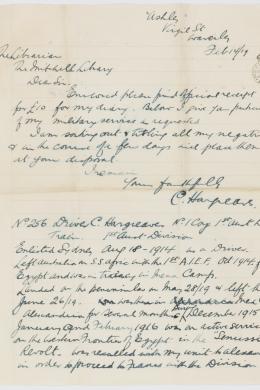 "Ashley"
Virgil St
Waverley
Feb 14/19
The Librarian
The Mitchell Library
Dear Sir,
Enclosed please find official receipt
for £10 for my diary. Below I give you
of my military services as requested
I am sorting out & titling all my
& in the course of a few days will place them
at your disposal.
I remain
Yours faithfully
C. Hargreaves
No 256 Driver C. Hargreaves No 1 Coy 1st Aust
Train. 1st Aust Division
Enlisted Sydney Aug 18-1914 as a Driver.
Left Australia on SS Afric with the 1st A.I.F. Oct 1914
Egypt and was in Mena Camp.
Landed on the peninsula on May 28/19 & left the
June 26/19. was
Alexandria for several months December 1915
January and February 1916 was on active service
on the Western Frontier of Egypt in the "Senussi
Revolt. was recalled with my unit to
in order to proceed to France with the Division